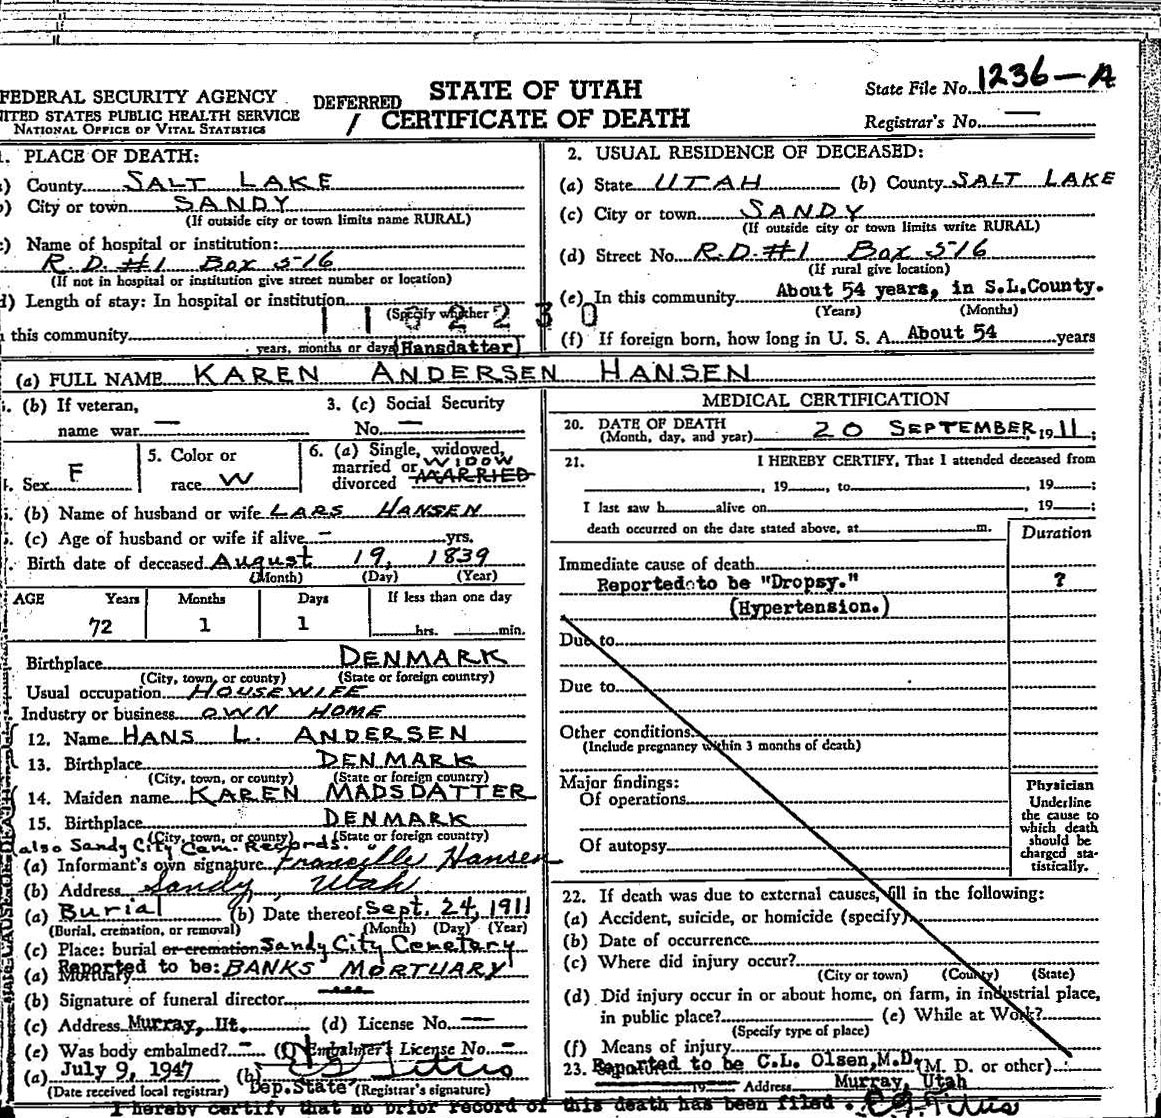 STATE OF UTAH
CERTIFICATE OF DEATH
DEFERRED
FEDERAL SECURITY AGENCY
UNITED STATES PUBLIC HEALTH SERVICE
NATIONAL OFFICE OF VITAL STATISTICS
State File No. 1236-A
Registrar's No. —
1. PLACE OF DEATH:
(a) County SALT LAKE
(b) City or town SANDY
(If outside city or town limits name RURAL)
(c) Name of hospital or institution:
R.D. #1 Box 516
(If not in hospital or institution give street number or location)
(d) Length of stay: In hospital or institution
(Specify whether
this community
years, months or days) (Hansdatter)
2. USUAL RESIDENCE OF DECEASED:
(a) State UTAH (b) County SALT LAKE
(c) City or town SANDY
(If outside city or town limits write RURAL)
(d) Street No. R.D. #1 Box 516
(If rural give location)
(e) In this community About 54 years, in S.L.County.
(Years) (Months)
(f) If foreign born, how long in U. S. A. About 54 years
(a) FULL NAME KAREN ANDERSEN HANSEN
(b) If veteran,
name war —
3. (c) Social Security
No. —
Sex F
5. Color or
race W
6. (a) Single, widowed,
married or WIDOW
divorced MARRIED
(b) Name of husband or wife LARS HANSEN
(c) Age of husband or wife if alive — yrs.
Birth date of deceased August 19, 1839
(Month) (Day) (Year)
AGE Years Months Days If less than one day
72 1 1 hrs. min.
Birthplace DENMARK
(City, town, or county) (State or foreign country)
Usual occupation HOUSEWIFE
Industry or business OWN HOME
12. Name HANS L. ANDERSEN
13. Birthplace DENMARK
(City, town, or county) (State or foreign country)
14. Maiden name KAREN MADSDATTER
15. Birthplace DENMARK
(City, town, or county) (State or foreign country)
also Sandy City Cem. Records.
(a) Informant's own signature Francille Hansen
(b) Address Sandy, Utah
(a) Burial (b) Date thereof Sept. 24, 1911
(Burial, cremation, or removal) (Month) (Day) (Year)
(c) Place: burial or cremation Sandy City Cemetery
(a) Mortuary Reported to be: BANKS MORTUARY
(b) Signature of funeral director
(c) Address Murray, Ut. (d) License No. —
(e) Was body embalmed? - (f) Embalmer's License No. -
(a) July 9, 1947 (b)
Dep. State
(Date received local registrar) (Registrar's signature)
MEDICAL CERTIFICATION
20. DATE OF DEATH
(Month, day, and year) 20 SEPTEMBER, 1911;
21. I HEREBY CERTIFY, That I attended deceased from
, 19 , to , 19 ;
I last saw h alive on , 19 ;
death occurred on the date stated above, at m.
Duration
Immediate cause of death
Reported to be "Dropsy." ?
(Hypertension.)
Due to
Due to
Other conditions
(Include pregnancy within 3 months of death)
Major findings:
Of operations
Of autopsy
Physician
Underline
the cause to
which death
should be
charged sta-
tistically.
22. If death was due to external causes, fill in the following:
(a) Accident, suicide, or homicide (specify)
(b) Date of occurrence
(c) Where did injury occur?
(City or town) (County) (State)
(d) Did injury occur in or about home, on farm, in industrial place,
in public place? (e) While at Work?
(Specify type of place)
(f) Means of injury
23. Reported to be C.L. Olsen, M.D. (M. D. or other)
19 Address Murray, Utah
I hereby certify that no prior record of this death has been filed.